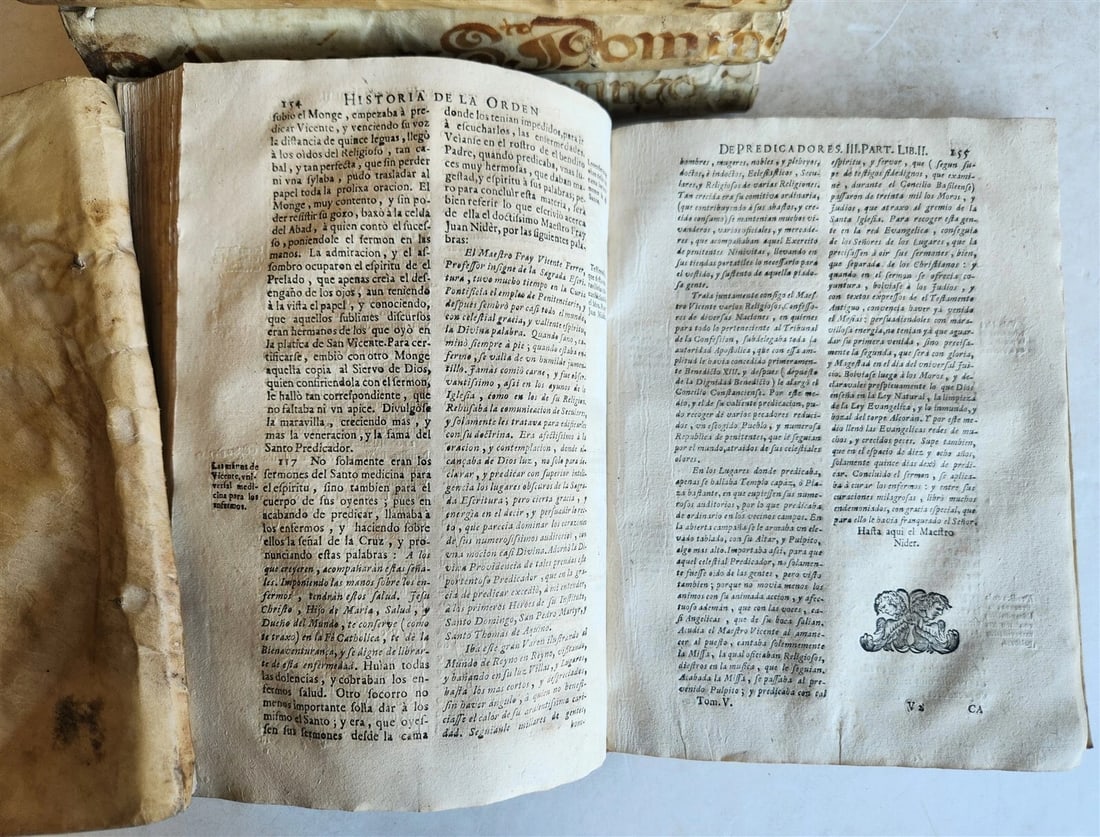 Sto
S. Domin
154 HISTORIA DE LA ORDEN
subiò el Monge, empezaba à pre-
dicar Vicente, y venciendo su voz
la distancia de quince leguas, llegò
à los oìdos del Religioso, tan ca-
bal, y tan perfecta, que sin perder
ni vna sylaba, pudo trasladar al
papel toda la prolixa oracion. El
Monge, muy contento, y sin po-
der resistir su gozo, baxò à la celda
del Abad, à quien contò el sucef-
so, poniendole el sermon en las
manos. La admiracion, y el as-
sombro ocuparon el espiritu de el
Prelado, que apenas creìa el def-
engaño de los ojos, aun teniendo
à la vista el papel, y conociendo,
que aquellos sublimes discursos
eran hermanos de los que oyò en
la platica de San Vicente. Para cer-
tificarse, embiò con otro Monge
aquella copia al Siervo de Dios,
quien confiriendola con el sermon,
le hallò tan correspondiente, que
no faltaba ni vn apice. Divulgòse
la maravilla, creciendo mas, y
mas la veneracion, y la fama del
Santo Predicador.
Las manos de
Vicente, vni-
versal medi-
cina para los
enfermos.
117 No solamente eran los
sermones del Santo medicina para
el espiritu, sino tambien para el
cuerpo de sus oyentes; pues en
acabando de predicar, llamaba à
los enfermos, y haciendo sobre
ellos la señal de la Cruz, y pro-
nunciando estas palabras: A los
que creyeren, acompañaràn estas seña-
les. Imponiendo las manos sobre los en-
fermos, tendràn estos salud. Jesu
Christo, Hijo de Maria, Salud, y
Dueño del Mundo, te conserve (como
te traxo) en la Fè Catholica, te dè la
Bienaventurança, y se digne de librar-
te de esta enfermedad. Huìan todas
las dolencias, y cobraban los en-
fermos salud. Otro socorro no
menos importante solìa dar à los
mismo el Santo; y era, que oyes-
sen sus sermones desde la cama
donde los tenian impedidos, para ir
à escucharlos, las enfermedades.
Veìanse en el rostro de el bendito
Padre, quando predicaba, vnas lu-
ces muy hermosas, que daban ma-
gestad, y espiritu à sus palabras; pe-
ro para concluir esta materia, serà
bien referir lo que escriviò acerca
de ella el doctissimo Maestro Fray
Juan Nidèr, por las siguientes pala-
bras:
El Maestro Fray Vicente Ferrer,
Professor insigne de la Sagrada Escri-
tura, tuvo mucho tiempo en la Curia
Pontificia el empleo de Penitenciario, y
despues sembrò por casi todo el mundo,
con celestial gracia, y valiente espiritu,
la Divina palabra. Quando sano, ca-
minò siempre à pie; quando estaba en-
fermo, se valìa de vn humilde jumen-
tillo. Jamàs comiò carne, y fue obser-
vantissimo, assi en los ayunos de la
Iglesia, como en los de su Religion.
Rehusaba la comunicacion de Seculares,
y solamente los trataba para edificarlos
con su doctrina. Era afectissimo à la
oracion, y contemplacion, donde al-
cançaba de Dios luz, no solo para de-
clarar, y predicar con superior inteli-
gencia los lugares obscuros de la Sagra-
da Escritura; pero cierta gracia, y
energia en el decir, y persuadir lo rec-
to, que parecia dominar los corazones
de sus numerosissimos auditorios, con
vna mocion casi Divina. Adornò la Di-
vina Providencia de tales prendas este
portentoso Predicador, que en la gra-
cia de predicar excediò, à mi entender,
à los primeros Heroes de su Instituto,
Santo Domingo, San Pedro Martyr, y
Santo Thomàs de Aquino.
Iba este gran Varon ilustrando al
Mundo de Reyno en Reyno, visitando,
y bañando en su luz Villas, y Lugares,
hasta los mas cortos, y despreciados,
sin haver angulo, à quien no benefi-
ciasse el calor de su ardentissima cari-
dad. Seguianle millares de gentes,
hom-
DE PREDICADORES. III. PART. LIB. II. 155
hombres, mugeres, nobles, y plebeyos,
doctos, è indoctos, Eclesiasticos, Secu-
lares, y Religiosos de varias Religiones.
Tan crecida era su comitiva ordinaria,
(que contribuyendo à sus abastos, y cre-
cido consumo) se mantenian muchos vi-
vanderos, varios oficiales, y mercade-
res, que acompañaban aquel Exercito
de penitentes Ninivitas, llevando en
sus tiendas portatiles lo necessario para
el vestido, y sustento de aquella piado-
sa gente.
Traìa juntamente consigo el Maes-
tro Vicente varios Religiosos, Confesso-
res de diversas Naciones, en quienes
para todo lo perteneciente al Tribunal
de la Confession, subdelegaba toda la
autoridad Apostolica, que con essa am-
plitud le havia concedido primeramen-
te Benedicto XIII. y despues (depuesto
de la Dignidad Benedicto) le alargò el
Concilio Constanciense. Por este me-
dio, y el de su valiente predicacion, pu-
do recoger de varios pecadores reduci-
dos, vn escogido Pueblo, y numerosa
Republica de penitentes, que le seguian
por el mundo, atraìdos de sus celestiales
olores.
En los Lugares donde predicaba,
apenas se hallaba Templo capàz, ò Pla-
za bastante, en que cupiessen sus nume-
rosos auditorios, por lo que predicaba
de ordinario en los vecinos campos. En
la abierta campaña se le armaba vn ele-
vado tablado, con su Altar, y Pulpito,
algo mas alto. Importaba assi, para que
aquel celestial Predicador, no solamen-
te fuesse oìdo de las gentes, pero visto
tambien; porque no movia menos los
animos con su animada accion, y afec-
tuoso ademàn, que con las voces, ca-
si Angelicas, que de su boca salian.
Acudia el Maestro Vicente al amane-
cer al puesto, cantaba solemnemente
la Missa, la qual oficiaban Religiosos,
diestros en la musica, que le seguian.
Acabada la Missa, se passaba al pre-
venido Pulpito; y predicaba con tal
Tom. V.
espiritu, y fervor, que (segun su-
pe de testigos fidedignos, que exami-
nè, durante el Concilio Basileense)
passaron de treinta mil los Moros, y
Judios, que atraxo al gremio de la
Santa Iglesia. Para recoger esta gen-
te en la red Evangelica, conseguia
de los Señores de los Lugares, que la
precissassen à oìr sus sermones, bien,
que separada de los Christianos: y
quando en el sermon se ofrecia co-
yuntura, bolviase à los Judios, y
con textos expressos del Testamento
Antiguo, convencia haver yà venido
el Mesias: persuadiendoles con mara-
villosa energìa, no tenian yà que aguar-
dar su primera venida, sino precisa-
mente la segunda, que serà con gloria,
y Magestad en el dia del universal Jui-
cio. Bolviase luego à los Moros, y de-
claravales propissimamente lo que Dios
enseña en la Ley Natural, la limpieza
de la Ley Evangelica, y lo inmundo, y
bozal del torpe Alcoràn. Y por este me-
dio llenò las Evangelicas redes de mu-
chos, y crecidos peces. Supe tambien,
que en el espacio de diez y ocho años,
solamente quince dias dexò de predi-
car. Concluìdo el sermon, se aplica-
ba à curar los enfermos: y entre sus
curaciones milagrosas, librò muchos
endemoniados, con gracia especial, que
para ello le havia franqueado el Señor.
Hasta aqui el Maestro
Nider.
V2 CA